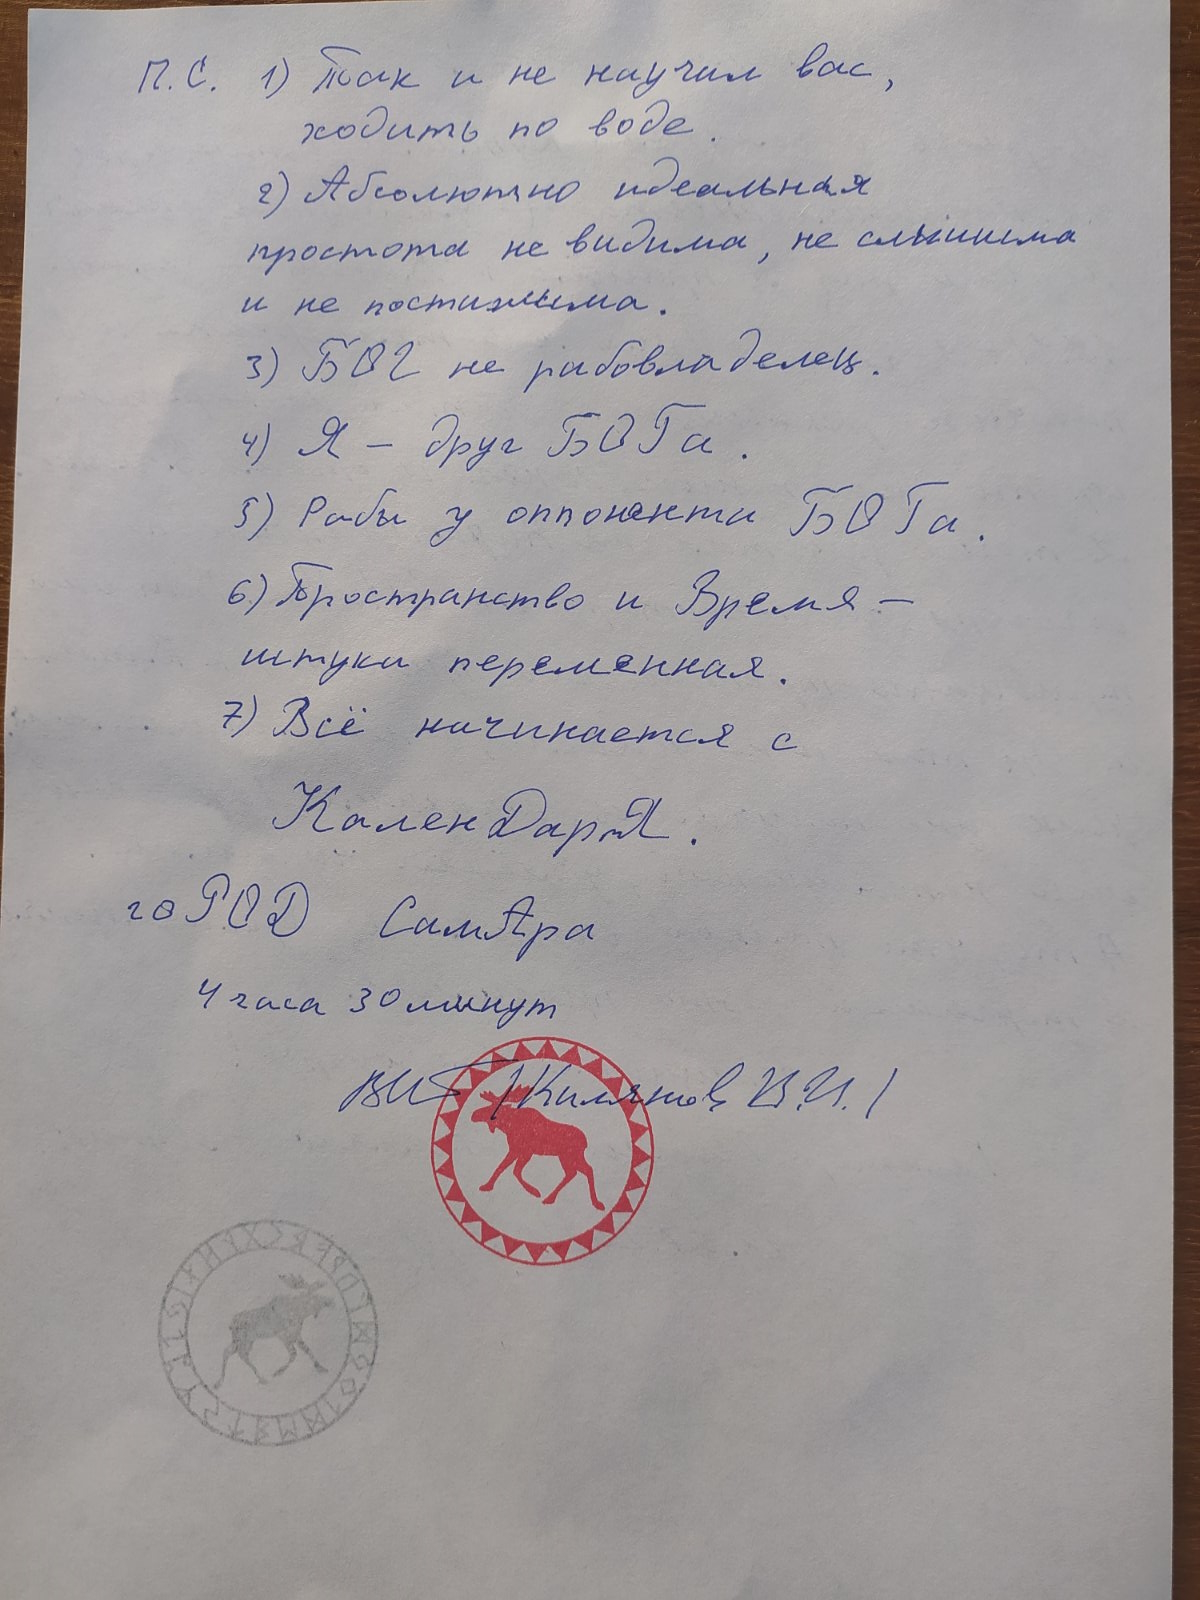 П.С. 1) Так и не научил вас,
ходить по воде.
2) Абсолютно идеальная
простота не видима, не слышима
и не постижима.
3) БОГ не рабовладелец.
4) Я – друг БОГа.
5) Рабы у оппонента БОГа.
6) Пространство и Время –
штука переменная.
7) Всё начинается с
КаленДарЯ.
гоРОД СамАра
4 часа 30 минут
В.И.